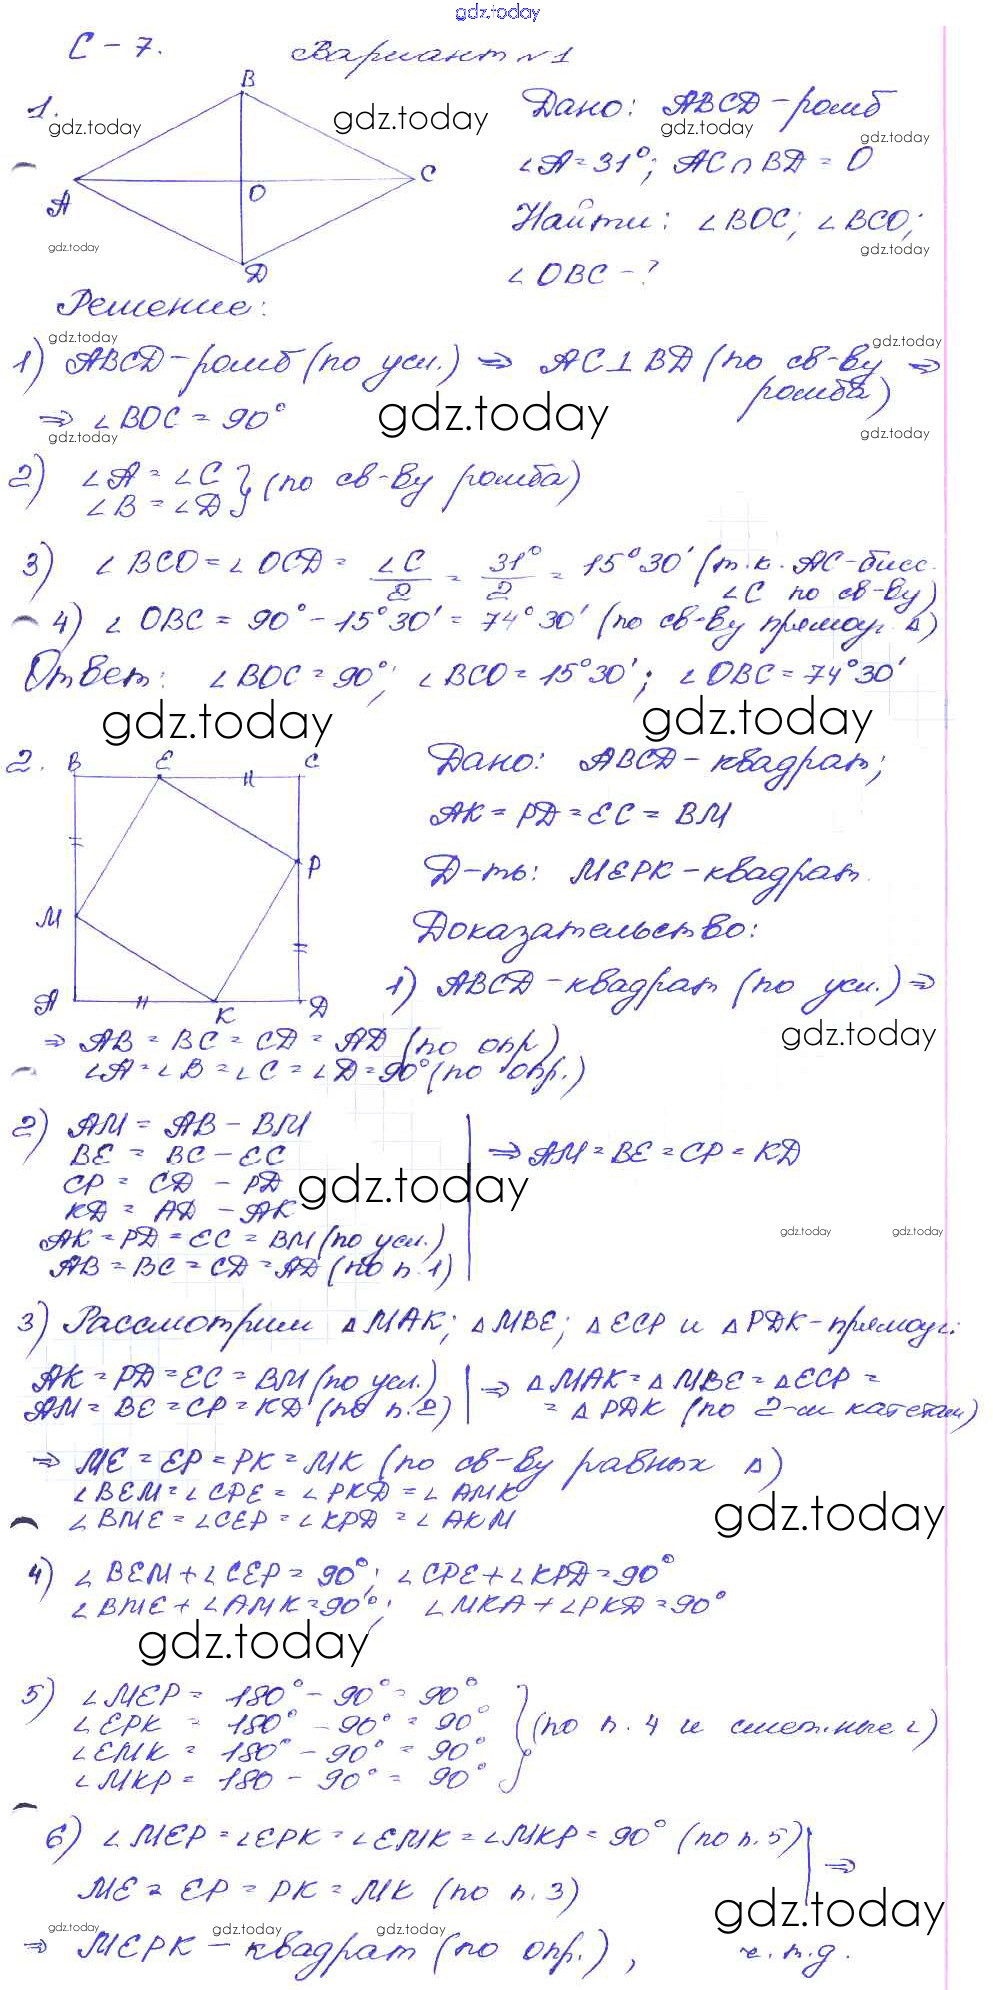 gdz.today
С – 7. Вариант №1
1.
B
A
O
C
D
Дано: ABCD – ромб
∠A = 31°; AC ∩ BD = O
Найти: ∠BOC; ∠BCO;
∠OBC – ?
Решение:
1) ABCD – ромб (по усл.) ⇒ AC ⊥ BD (по св-ву ромба) ⇒
⇒ ∠BOC = 90°
2) ∠A = ∠C
∠B = ∠D } (по св-ву ромба)
3) ∠BCO = ∠OCD = ∠C/2 = 31°/2 = 15°30' (т.к. AC – бисс. ∠C по св-ву)
4) ∠OBC = 90° – 15°30' = 74°30' (по св-ву прямоуг. Δ)
Ответ: ∠BOC = 90°; ∠BCO = 15°30'; ∠OBC = 74°30'
gdz.today gdz.today
2.
B E C
P
M
A K D
Дано: ABCD – квадрат;
AK = PD = EC = BM
Д-ть: MEPK – квадрат.
Доказательство:
1) ABCD – квадрат (по усл.) ⇒
⇒ AB = BC = CD = AD (по опр)
∠A = ∠B = ∠C = ∠D = 90° (по опр.)
2) AM = AB – BM
BE = BC – EC
CP = CD – PD
KD = AD – AK
AK = PD = EC = BM (по усл.)
AB = BC = CD = AD (по п.1)
⇒ AM = BE = CP = KD
3) Рассмотрим ΔMAK; ΔMBE; ΔECP и ΔPDK – прямоуг.:
AK = PD = EC = BM (по усл.)
AM = BE = CP = KD (по п.2)
⇒ ΔMAK = ΔMBE = ΔECP =
= ΔPDK (по 2-м катетам)
⇒ ME = EP = PK = MK (по св-ву равных Δ)
∠BEM = ∠CPE = ∠PKD = ∠AMK
∠BME = ∠CEP = ∠KPD = ∠AKM
4) ∠BEM + ∠CEP = 90°; ∠CPE + ∠KPD = 90°
∠BME + ∠AMK = 90°; ∠MKA + ∠PKD = 90°
gdz.today
5) ∠MEP = 180° – 90° = 90°
∠EPK = 180° – 90° = 90°
∠EMK = 180° – 90° = 90°
∠MKP = 180 – 90° = 90°
} (по п. 4 и смежные ∠)
6) ∠MEP = ∠EPK = ∠EMK = ∠MKP = 90° (по п.5)
ME = EP = PK = MK (по п.3)
⇒
⇒ MEPK – квадрат (по опр.), ч.т.д.